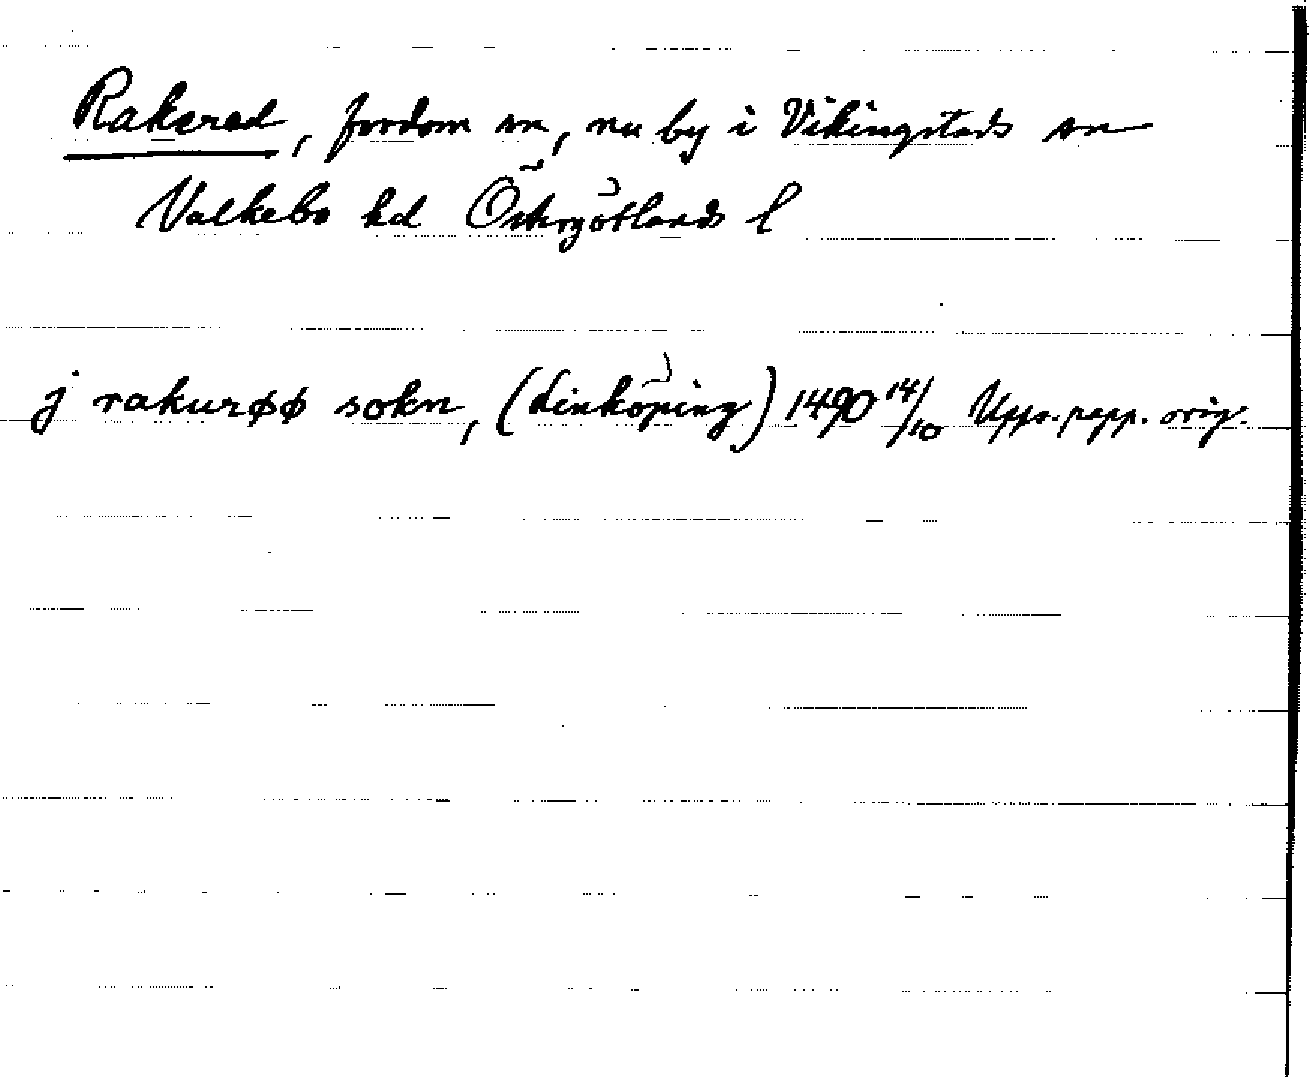 Rakered, fordom sn, nu by i Vikingstads sn
Valkebo hd Östergötlands l
j rakurøø sokn, (Linköping) 1490 14/10 Upps. papp. orig.